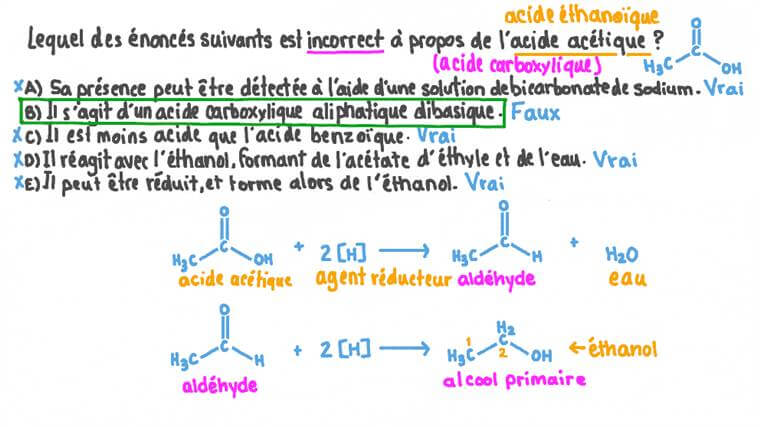 acide éthanoïque
Lequel des énoncés suivants est incorrect à propos de l'acide acétique ?
(acide carboxylique)
O
H₃C C OH
×A) Sa présence peut être détectée à l'aide d'une solution de bicarbonate de sodium. Vrai
B) Il s'agit d'un acide carboxylique aliphatique dibasique. Faux
×C) Il est moins acide que l'acide benzoïque. Vrai
×D) Il réagit avec l'éthanol, formant de l'acétate d'éthyle et de l'eau. Vrai
×E) Il peut être réduit, et forme alors de l'éthanol. Vrai
O O
H₃C C OH + 2 [H] ⟶ H₃C C H + H₂O
acide acétique agent réducteur aldéhyde eau
O H₂
H₃C C H + 2 [H] ⟶ H₃C 1 C 2 OH ← éthanol
aldéhyde alcool primaire